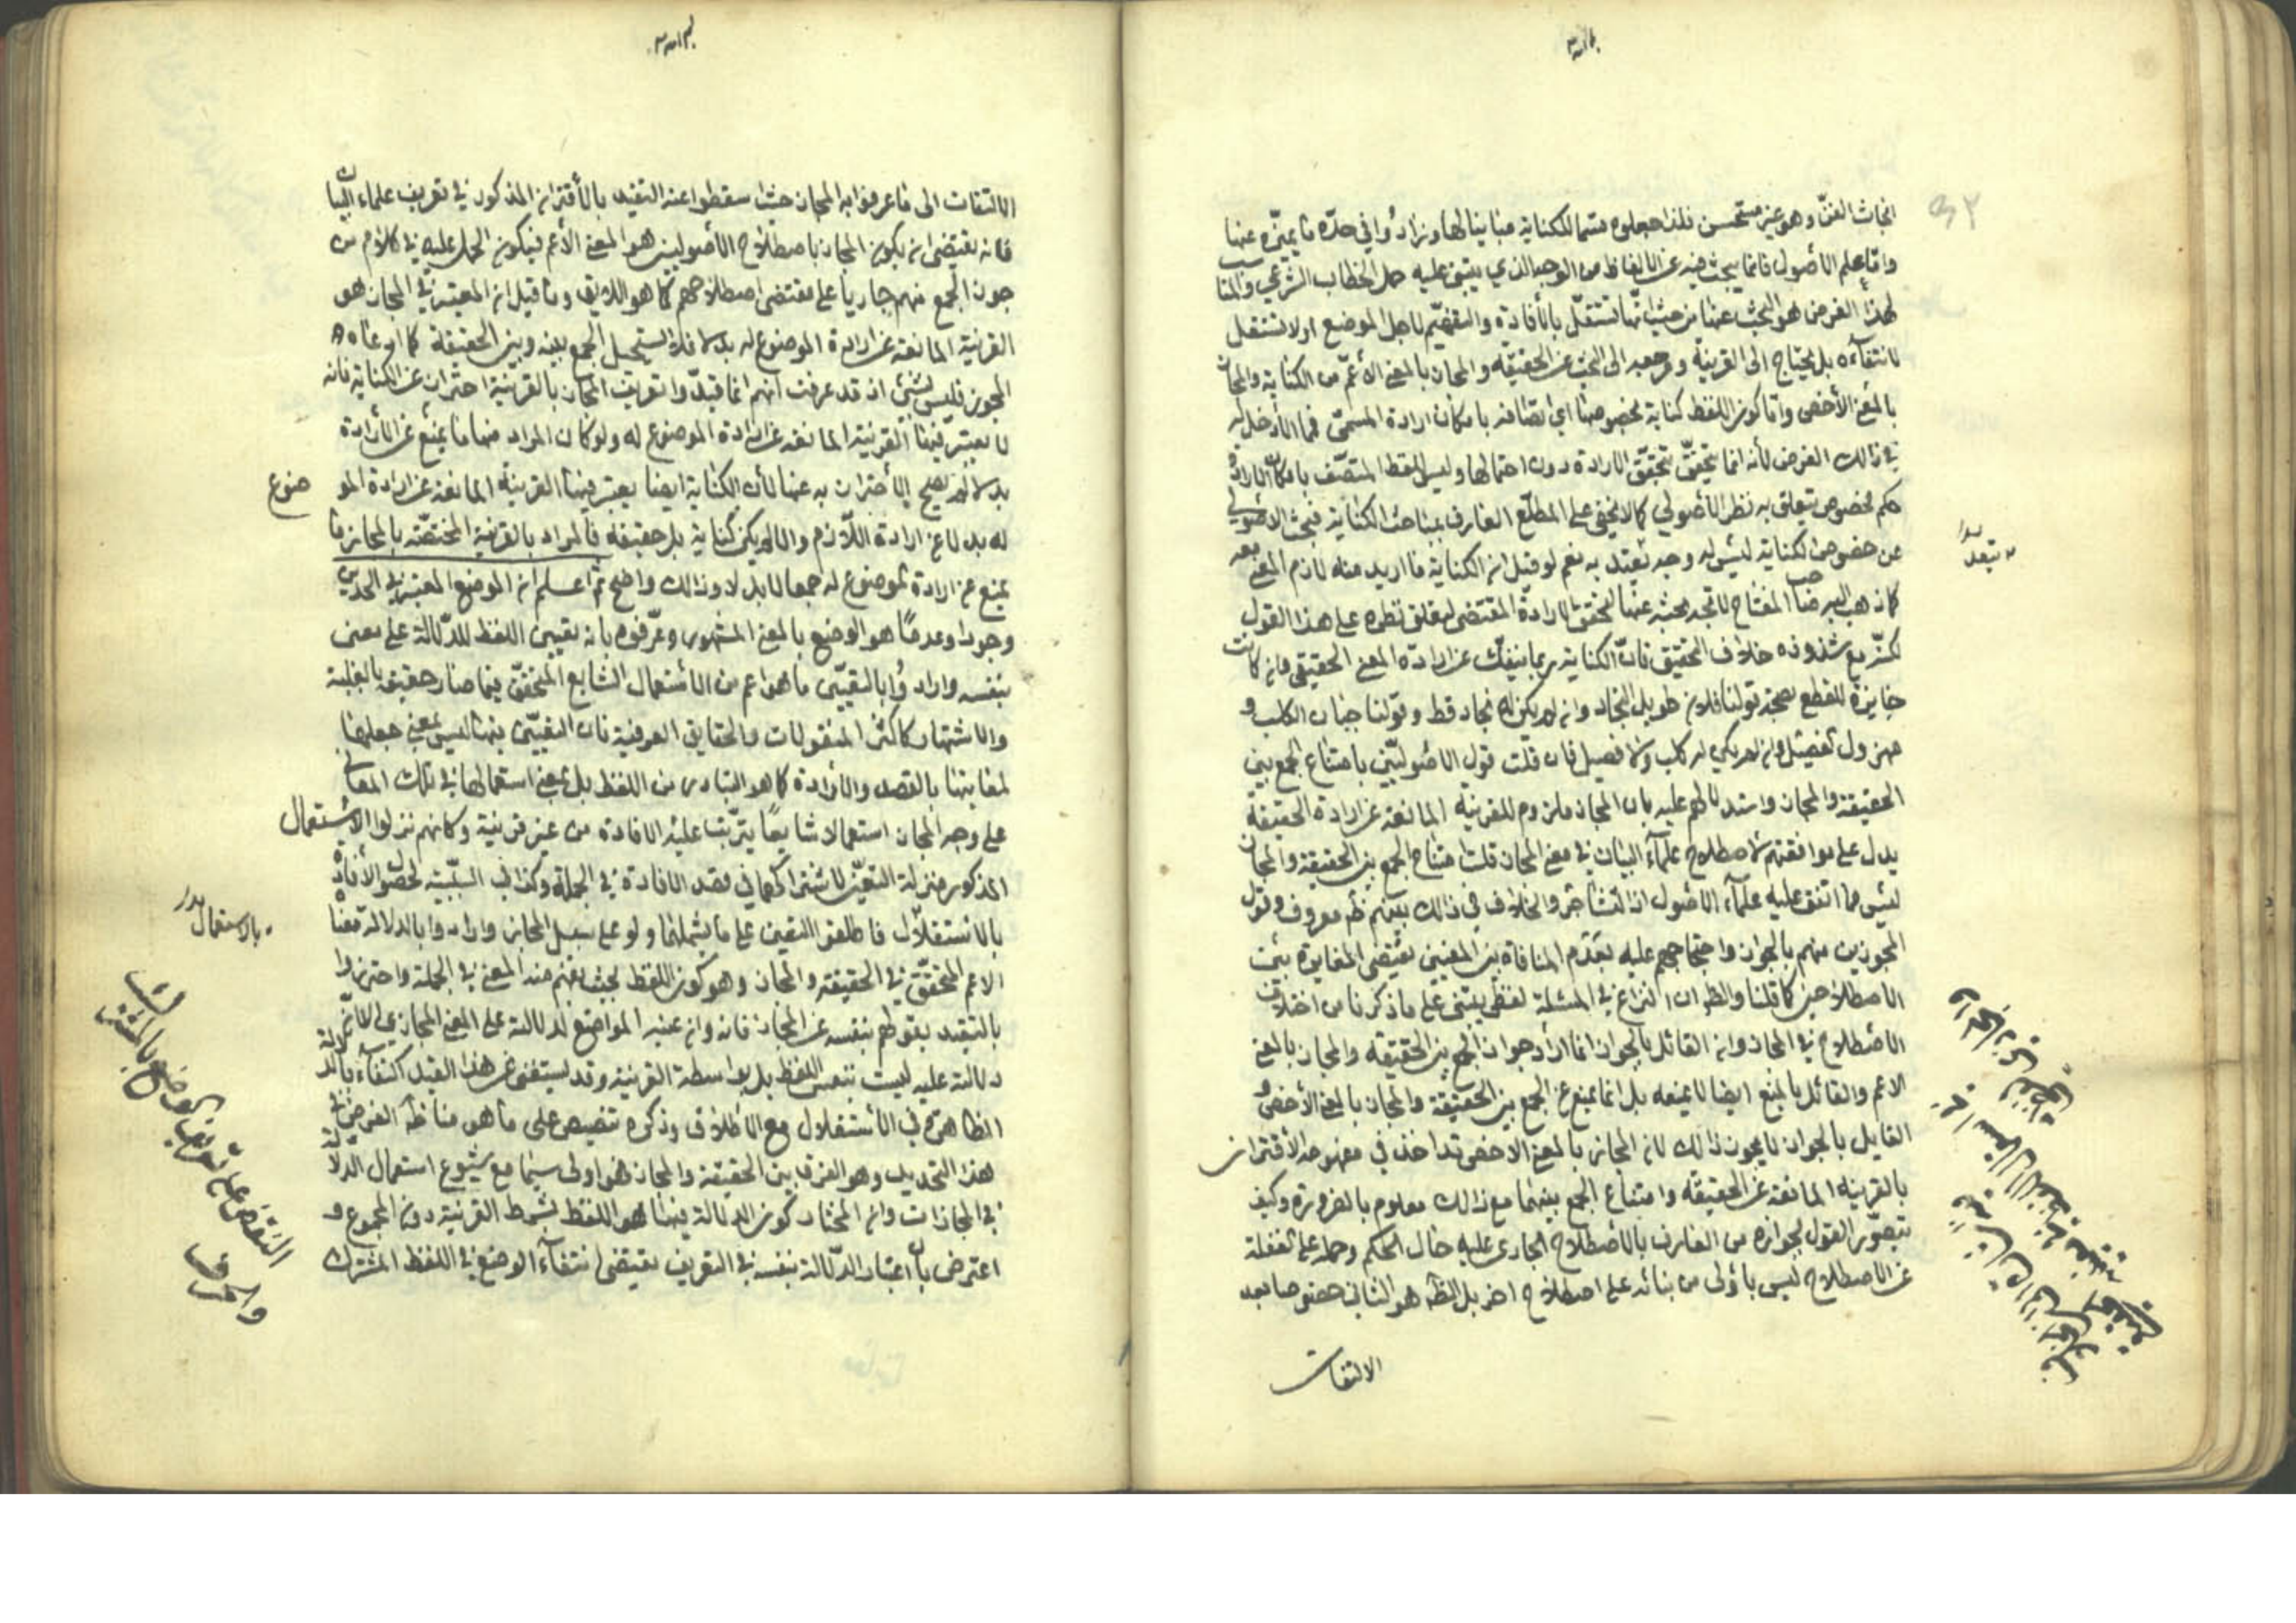 ابحاث الفنّ وهو غير مستحسن فلذا جعلوه قسما للكناية مباينا لها وزادُوا في حدّه ما يميّزه عنها
وامّا علم الاُصول فانما يبحث فيه عن الالفاظ من الوجه الذي يبتنى عليه حمل الخطاب الشرعي والمناسب
لهذا الغرض هو البحث عنها من حيث انّها تستقلّ بالأفادة والتفهيم لاجل الوضع او لا تستقل
لانتفآءه بل يحتاج الى القرينة ومرجعه الى البحث عن الحقيقة والمجاز بالمعنى الأعمّ من الكناية والمجاز
بالمعنى الأخص وامّا كون اللفظ كناية بخصوصها اي اتصافه بامكان ارادة المسمّى فمما لا دخل له
في ذالك الغرض لأنه انما يتحقق بتحقّق الارادة دون احتمالها وليس للفظ المتصف بامكان الارادة
حكم مخصوص يتعلق به نظر الاُصولي كما لا يخفى على المطلّع العارف بمباحث الكناية فبحث الاُصولي
عن خصوص الكناية ليس له وجه يعتد به نعم لو قيل ان الكناية ما اريد منه لازم المعنى معه
كما ذهب اليه صاحب المفتاح لاتجه بحثه عنها لتحقق الارادة المقتضى لتعلق نظره على هذا القول
لكنّه مع شذوذه خلاف التحقيق فانّ الكناية ربما ينفكّ عن ارادة المعنى الحقيقي وان كانت
جايزة للقطع بصحة قولنا فلان طويل النجاد وان لم يكن له نجاد قط وقولنا جبان الكلب و
مهزول الفصيل وان لم يكن له كلب ولا فصيل فان قلت قول الاُصوليّين بامتناع الجمع بين
الحقيقة والمجاز واستدلالهم عليه بان المجاز ملزوم للقرينة المانعة عن ارادة الحقيقة
يدل على موافقتهم لاصطلاح علمآء البيان في معنى المجاز قلت امتناع الجمع بين الحقيقة والمجاز
ليس مما اتفق عليه علمآء الاُصول اذ التشاجر والخلاف في ذالك بينهم ظ معروف وقول
المجوزين منهم بالجواز واحتجاجهم عليه بعدم المنافاة بين المعنيين يقتضى المغايرة بين
الاصطلاحين كما قلنا والظ ان النزاع في المسئلة لفظي يبتنى على ما ذكرنا من اختلاف
الأصطلاح في المجاز وان القائل بالجواز انما اراد جواز الجمع بين الحقيقة والمجاز بالمعنى
الاعم والقائل بالمنع ايضا لا يمنعه بل انما يمنع عن الجمع بين الحقيقة والمجاز بالمعنى الأخص و
القايل بالجواز لا يجوز ذالك لان المجاز بالمعنى الاخص قد اخذ في مفهومه الأقتران
بالقرينة المانعة عن الحقيقة وامتناع الجمع بينهما مع ذالك معلوم بالضرورة وكيف
يتصوّر القول بجوازه من العارف بالاُصطلاح الجاري عليه حال الحكم وحمله على الغفلة
عن الاصطلاح ليس باَولى من بنائه على اصطلاح اخر بل الظ هو الثاني خصوصا بعد
الالتفات
الالتفات الى ما عرفوا به المجاز حيث اسقطوا عنه التقيد بالأقتران المذكور في تعريف علماء البيان
فانه يقتضى ان يكون المجاز باصطلاح الاُصوليين هو المعنى الأعم فيكون الحمل عليه في كلام من
جوز الجمع منهم جاريا على مقتضى اصطلاحهم كما هو اللايق وما قيل ان المعتبر في المجاز هو
القرينة المانعة عن ارادة الموضوع له بدلا فلا يستحيل الجمع بينه وبين الحقيقة كما ادعاه
المجوز فليس بشئ اذ قد عرفت انهم انما قيدّوا تعريف المجاز بالقرينة احترازا عن الكناية فانه
لا يعتبر فيها القرينة المانعة عن ارادة الموضوع له ولو كان المراد منها ما يمنع عن الأرادة
بدلا لم يصح الأحتراز به عنها لأن الكناية ايضا يعتبر فيها القرينة المانعة عن ارادة الموضوع
له بدلا عن ارادة اللّازم والا لم يكن كناية بل حقيقة فالمراد بالقرينة المختصّة بالمجاز ما
يمنع عن ارادة الموضوع له جمعا لا بدلا وذالك واضح ثمّ اعلم ان الوضع المعتبر في الحدين
وجودا وعدمًا هو الوضع بالمعنى المشهور وعرّفوه بانه تعيين اللفظ للدّلالة على معنى
بنفسه وارادُوا بالتعيّن ما هو اعم من الأستعمال الشايع المتحقّق فيما صار حقيقة بالغلبة
والاشتهار كاكثر المنقولات والحقايق العرفية فان التعيّن فيها ليس بمعنى جعلها
لمعانيها بالقصد والأرادة كما هو المتبادر من اللفظ بل بمعنى استعمالها في تلك المعاني
على وجه المجاز استعمالا شايعًا يترّتب عليه الافادة من غير قرينة وكانهم نزلوا الاستعمال
المذكور منزلة التعيّن لاشتراكهما في قصد الافادة في الجملة وكذا في السببّية لحصول الأفادة
بالاُستقلال فاطلقوا التعين على ما يشملهما ولو على سبيل المجاز وارادوا بالدلالة معناها
الاعم المتحقّق في الحقيقة والمجاز وهو كون اللفظ بحيث يفهم منه المعنى في الجملة واحترزوا
بالتقيد بقولهم بنفسه عن المجاز فانه وان عينه الواضع للدلالة على المعنى المجازي الا انّ
دلالته عليه ليست بنفس اللفظ بل بواسطة القرينة وقد يستغنى عن هذا القيد اكتفآء بالدلالة
الظاهرة في الأستقلال مع الاُطلاق وذكره تنصيص على ما هو مناط الغرض في
هذا التحديد وهو الفرق بين الحقيقة والمجاز فهو اولى سيّما مع شيوع استعمال الدلالة
في المجازات وان المختار كون الدلالة فيها للفظ بشرط القرينة دون المجموع و
اعترض بان اعتبار الدّلالة بنفسه في التعريف يقتضى انتفآء الوضع في اللفظ المشترك
النقض على تعريف الوضع بالمشترك
والحرف